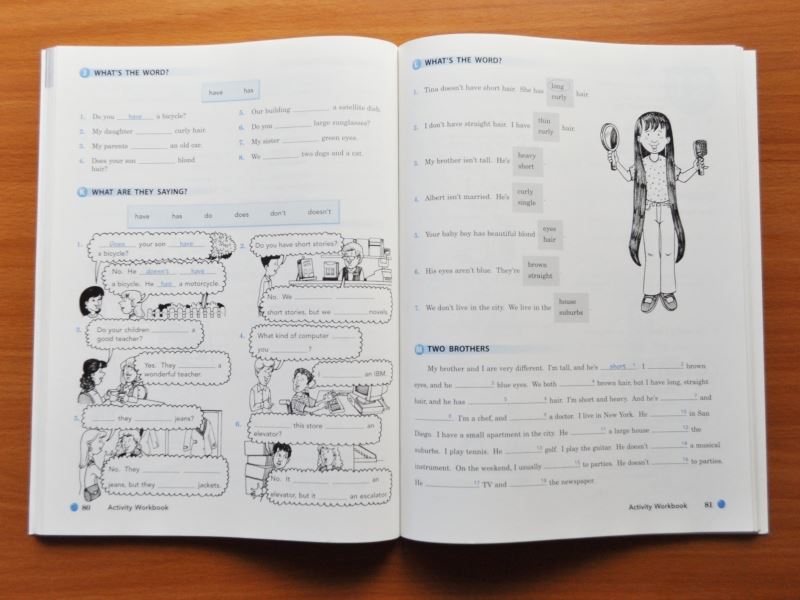 J WHAT'S THE WORD?
have has
1. Do you have a bicycle?
2. My daughter ________ curly hair.
3. My parents ________ an old car.
4. Does your son ________ blond
hair?
5. Our building ________ a satellite dish.
6. Do you ________ large sunglasses?
7. My sister ________ green eyes.
8. We ________ two dogs and a cat.
K WHAT ARE THEY SAYING?
have has do does don't doesn't
1. Does your son have
a bicycle?
No. He doesn't have
a bicycle. He has a motorcycle.
2. Do you have short stories?
No. We ________ ________
short stories, but we ________ novels.
3. Do your children ________ a
good teacher?
Yes. They ________ a
wonderful teacher.
4. What kind of computer ________
you ________?
________ an IBM.
5. ________ they ________ jeans?
No. They ________ ________
jeans, but they ________ jackets.
6. ________ this store ________ an
elevator?
No. It ________ ________ an
elevator, but it ________ an escalator.
80 Activity Workbook
L WHAT'S THE WORD?
1. Tina doesn't have short hair. She has long curly hair.
2. I don't have straight hair. I have thin curly hair.
3. My brother isn't tall. He's heavy short .
4. Albert isn't married. He's curly single .
5. Your baby boy has beautiful blond eyes hair .
6. His eyes aren't blue. They're brown straight .
7. We don't live in the city. We live in the house suburbs .
M TWO BROTHERS
My brother and I are very different. I'm tall, and he's short 1. I ________ 2 brown
eyes, and he ________ 3 blue eyes. We both ________ 4 brown hair, but I have long, straight
hair, and he has ________ 5 ________ 6 hair. I'm short and heavy. And he's ________ 7 and
________ 8. I'm a chef, and ________ 9 a doctor. I live in New York. He ________ 10 in San
Diego. I have a small apartment in the city. He ________ 11 a large house ________ 12 the
suburbs. I play tennis. He ________ 13 golf. I play the guitar. He doesn't ________ 14 a musical
instrument. On the weekend, I usually ________ 15 to parties. He doesn't ________ 16 to parties.
He ________ 17 TV and ________ 18 the newspaper.
Activity Workbook 81